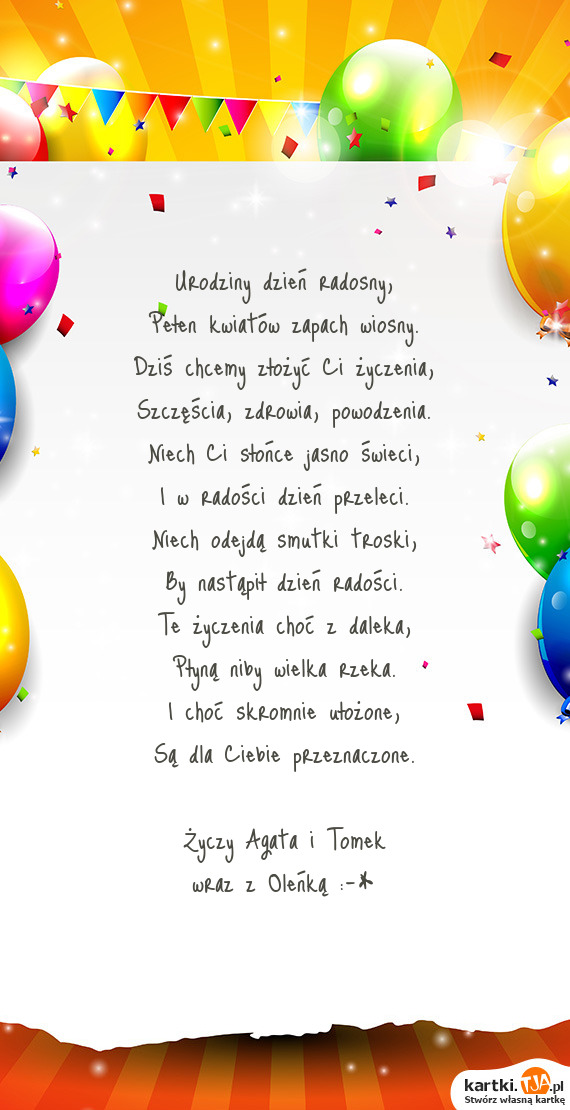 Urodziny dzień radosny,
Pełen kwiatów zapach wiosny.
Dziś chcemy złożyć Ci życzenia,
Szczęścia, zdrowia, powodzenia.
Niech Ci słońce jasno świeci,
I w radości dzień przeleci.
Niech odejdą smutki troski,
By nastąpił dzień radości.
Te życzenia choć z daleka,
Płyną niby wielka rzeka.
I choć skromnie ułożone,
Są dla Ciebie przeznaczone.
Życzy Agata i Tomek
wraz z Oleńką :-*
kartki.TJA.pl
Stwórz własną kartkę